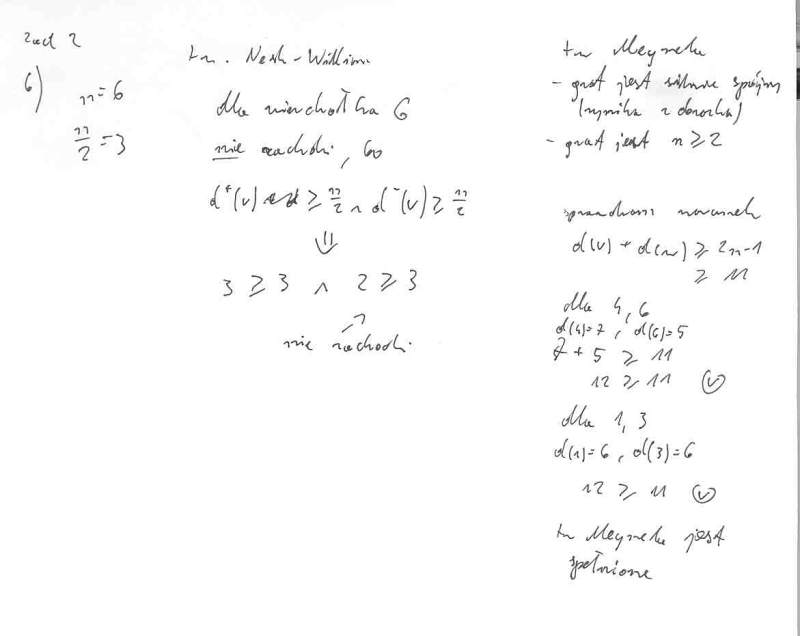 zad 2
6)
n=6
n/2 = 3
tw. Nash-William
dla wierzchołka 6
nie zachodzi, bo
d⁺(v) ≥ n/2 ∧ d⁻(v) ≥ n/2
⇓
3 ≥ 3 ∧ 2 ≥ 3
↗
nie zachodzi.
tw Meyniela
- graf jest silnie spójny
(wynika z dowodu)
- graf jest n ≥ 2
sprawdzam warunek
d(v) + d(w) ≥ 2n-1
≥ 11
dla 4, 6
d(4)=7, d(6)=5
7 + 5 ≥ 11
12 ≥ 11 ✓
dla 1, 3
d(1)=6, d(3)=6
12 ≥ 11 ✓
tw Meyniela jest
spełnione